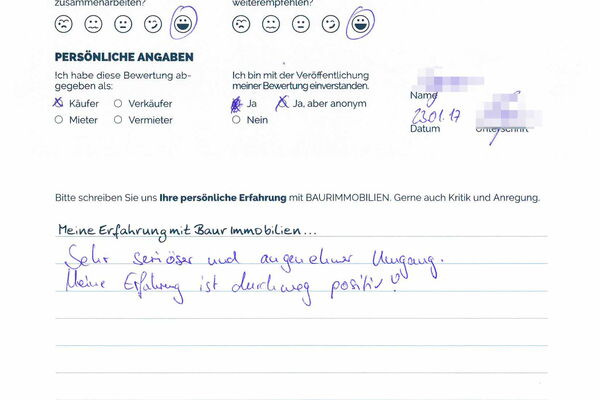 zusammenarbeiten?
weiterempfehlen?
PERSÖNLICHE ANGABEN
Ich habe diese Bewertung ab-
gegeben als:
Käufer
Verkäufer
Mieter
Vermieter
Ich bin mit der Veröffentlichung
meiner Bewertung einverstanden.
Ja
Ja, aber anonym
Nein
Name
23.01.17
Datum
Unterschrift
Bitte schreiben Sie uns Ihre persönliche Erfahrung mit BAURIMMOBILIEN. Gerne auch Kritik und Anregung.
Meine Erfahrung mit Baur Immobilien...
Sehr seriöser und angenehmer Umgang.
Meine Erfahrung ist durchweg positiv!